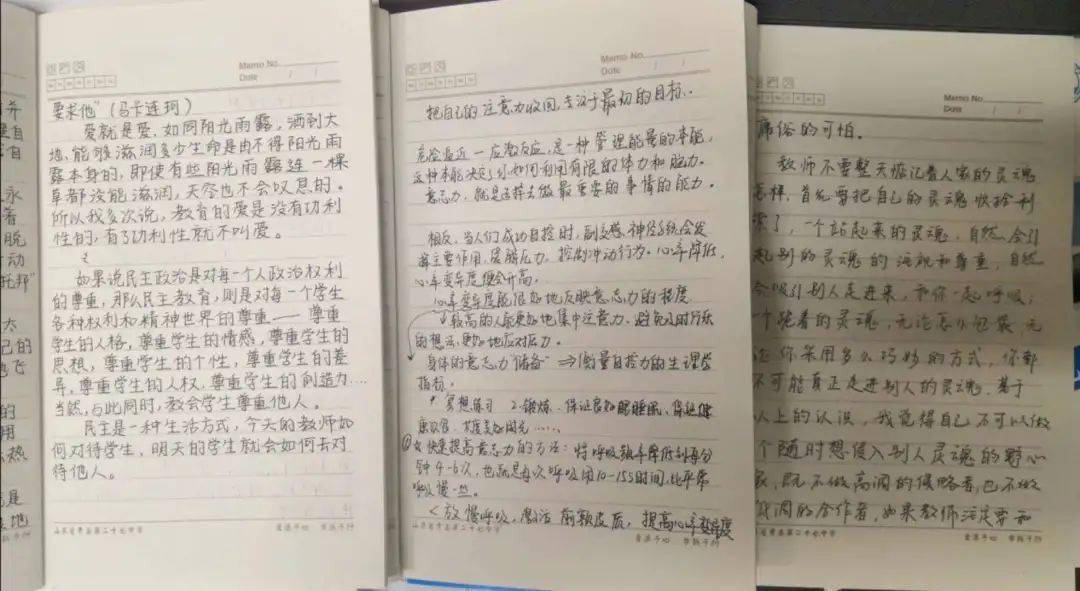 并
自
永
着
脱
动
托邦"
大
己的
飞
的
用
热
是
地
Memo No.
Date / /
要求他"(马卡连珂)
爱就是爱,如同阳光雨露,洒到大
地,能够滋润多少生命是由不得阳光雨
露本身的,即使有些阳光雨露连一棵
草都没能滋润,天空也不会叹息的。
所以我多次说,教育的爱是没有功利
性的,有了功利性就不叫爱。
如果说民主政治是对每一个人政治权利
的尊重,那么民主教育,则是对每一个学生
各种权利和精神世界的尊重——尊重
学生的人格,尊重学生的情感,尊重学生的
思想,尊重学生的个性,尊重学生的差
异,尊重学生的人权,尊重学生的创造力……
当然,与此同时,教会学生尊重他人。
民主是一种生活方式,今天的教师如
何对待学生,明天的学生就会如何去对
待他人。
Memo No.
Date / /
把自己的注意力收回,专注于最初的目标。
危险逼近—应激反应,是一种管理能量的本能,
这种本能决定了你如何利用有限的体力和脑力。
意志力,就是选择去做最重要的事情的能力。
相反,当人们成功自控时,副交感神经系统会发
挥主要作用,缓解压力,控制冲动行为。心率降低,
心率变异度便会升高。
心率变异度能很好地反映意志力的程度
较高的人能更好地集中注意力、避免及时行乐
的想法、更好地应对压力。
身体的意志力"储备"⇒衡量自控力的生理学
指标。
冥想练习 2.锻炼、保证良好睡眠、保证健
康饮食
快速提高意志力的方法:将呼吸频率降低到每分
钟4-6次,也就是每次呼吸用10-15S时间,比平常
呼吸慢一些。
<放慢呼吸,激活前额皮质,提高心率变异度
Memo No.
Date / /
庸俗的可怕。
教师不要整天惦记着人家的灵魂
怎样,首先要把自己的灵魂收拾利
索了,一个站起来的灵魂,自然会引
起别的灵魂的注视和尊重,自然
会吸引别人走进来,和你一起呼吸;
一个跪着的灵魂,无论怎么包装,无
论你采用多么巧妙的方式,你都
不可能真正走进别人的灵魂。基于
以上的认识,我觉得自己不可以做
个随时想侵入别人灵魂的野心
家,既不做高调的侵略者,也不做
低调的合作者,如果教师注定要和